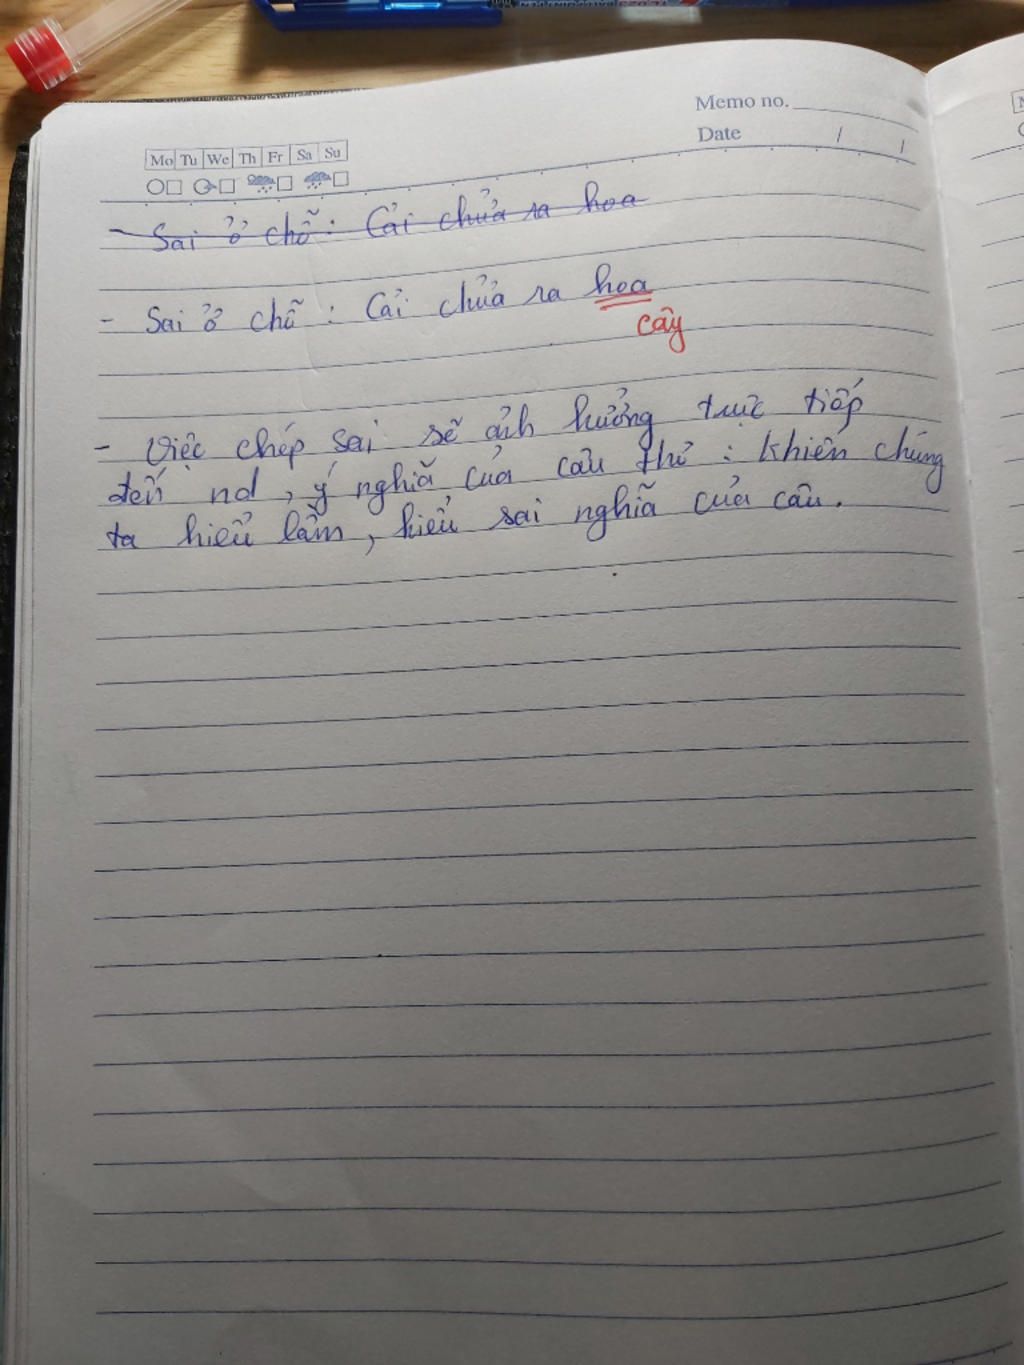 Memo no.
Date / /
Mo Tu We Th Fr Sa Su
- Sai ở chỗ : Cải chửa ra hoa
- Sai ở chỗ : Cải chửa ra hoa
cây
- Việc chép sai sẽ ảnh hưởng trực tiếp
đến nd, ý nghĩa của câu thơ : khiến chúng
ta hiểu lầm, hiểu sai nghĩa của câu.